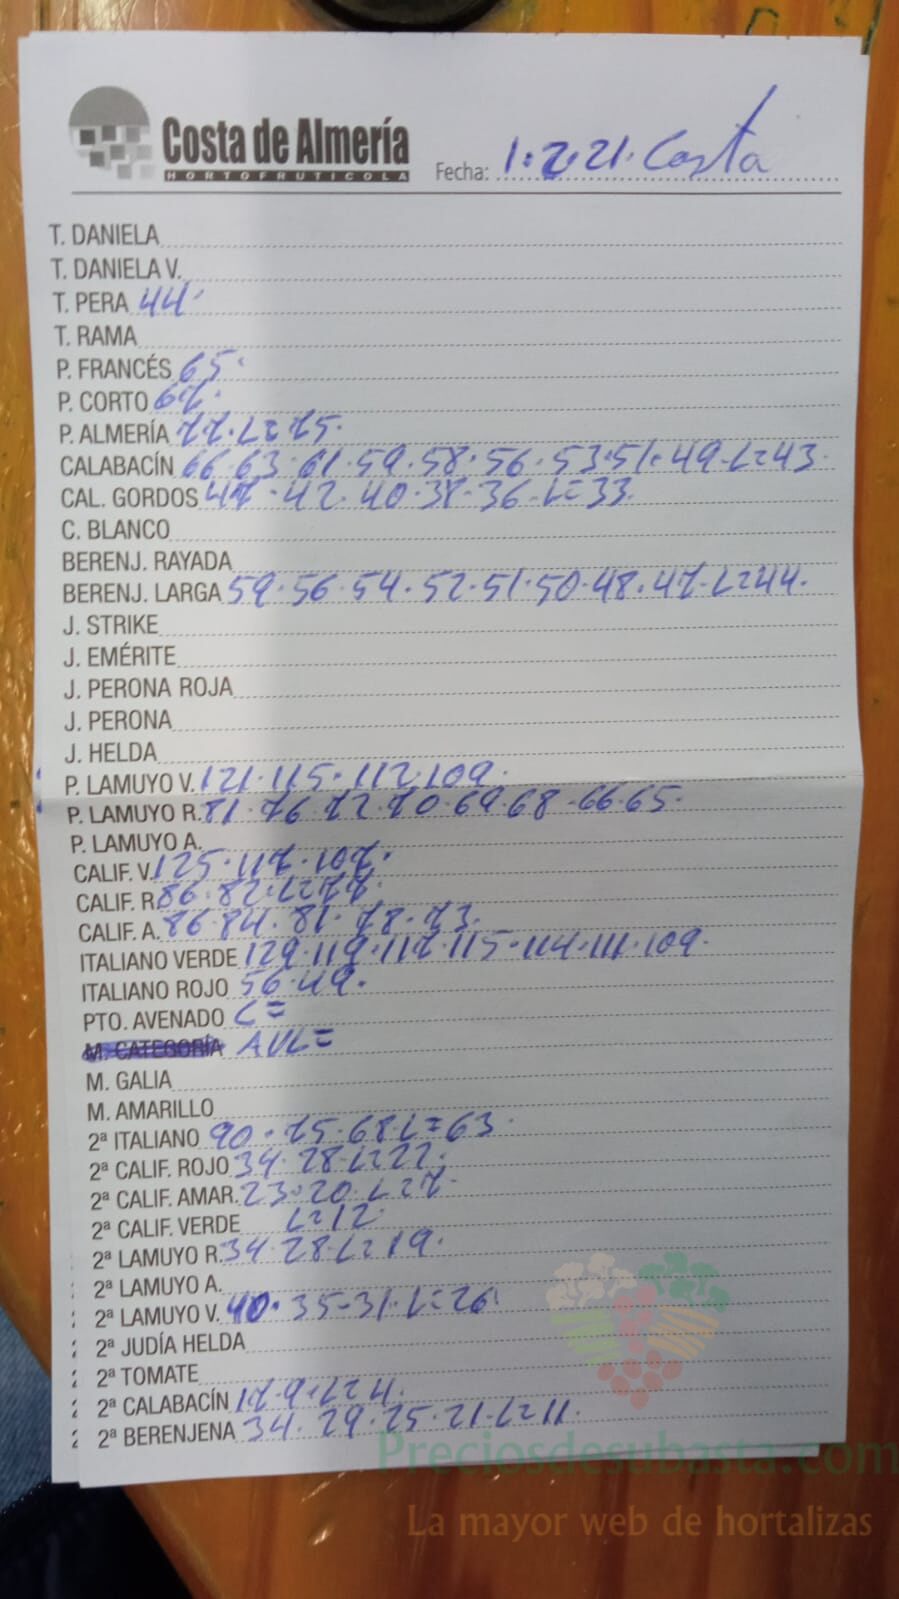 Costa de Almería
HORTOFRUTICOLA
Fecha: 1.2.21. Costa
T. DANIELA
T. DANIELA V.
T. PERA 44
T. RAMA
P. FRANCÉS 65.
P. CORTO 67.
P. ALMERÍA 77. L= 75.
CALABACÍN 66. 63. 61. 59. 58. 56. 53. 51. 49. L= 43.
CAL. GORDOS 47. 42. 40. 38. 36. L= 33.
C. BLANCO
BERENJ. RAYADA
BERENJ. LARGA 59. 56. 54. 52. 51. 50. 48. 47. L= 44.
J. STRIKE
J. EMÉRITE
J. PERONA ROJA
J. PERONA
J. HELDA
P. LAMUYO V. 121. 115. 112. 109.
P. LAMUYO R. 81. 76. 72. 70. 69. 68. 66. 65.
P. LAMUYO A.
CALIF. V. 125. 117. 107.
CALIF. R. 86. 82. L= 77.
CALIF. A. 86. 84. 81. 78. 73.
ITALIANO VERDE 129. 119. 117. 115. 114. 111. 109.
ITALIANO ROJO 56. 49.
PTO. AVENADO L=
M. CATEGORÍA AVL=
M. GALIA
M. AMARILLO
2ª ITALIANO 90. 75. 68. L= 63.
2ª CALIF. ROJO 34. 28. L= 22.
2ª CALIF. AMAR. 23. 20. L= 7.
2ª CALIF. VERDE L= 12.
2ª LAMUYO R. 34. 28. L= 19.
2ª LAMUYO A.
2ª LAMUYO V. 40. 35. 31. L= 26.
2ª JUDÍA HELDA
2ª TOMATE
2ª CALABACÍN 17. 9. L= 4.
2ª BERENJENA 34. 29. 25. 21. L= 11.
Preciosdesubasta.com
La mayor web de hortalizas